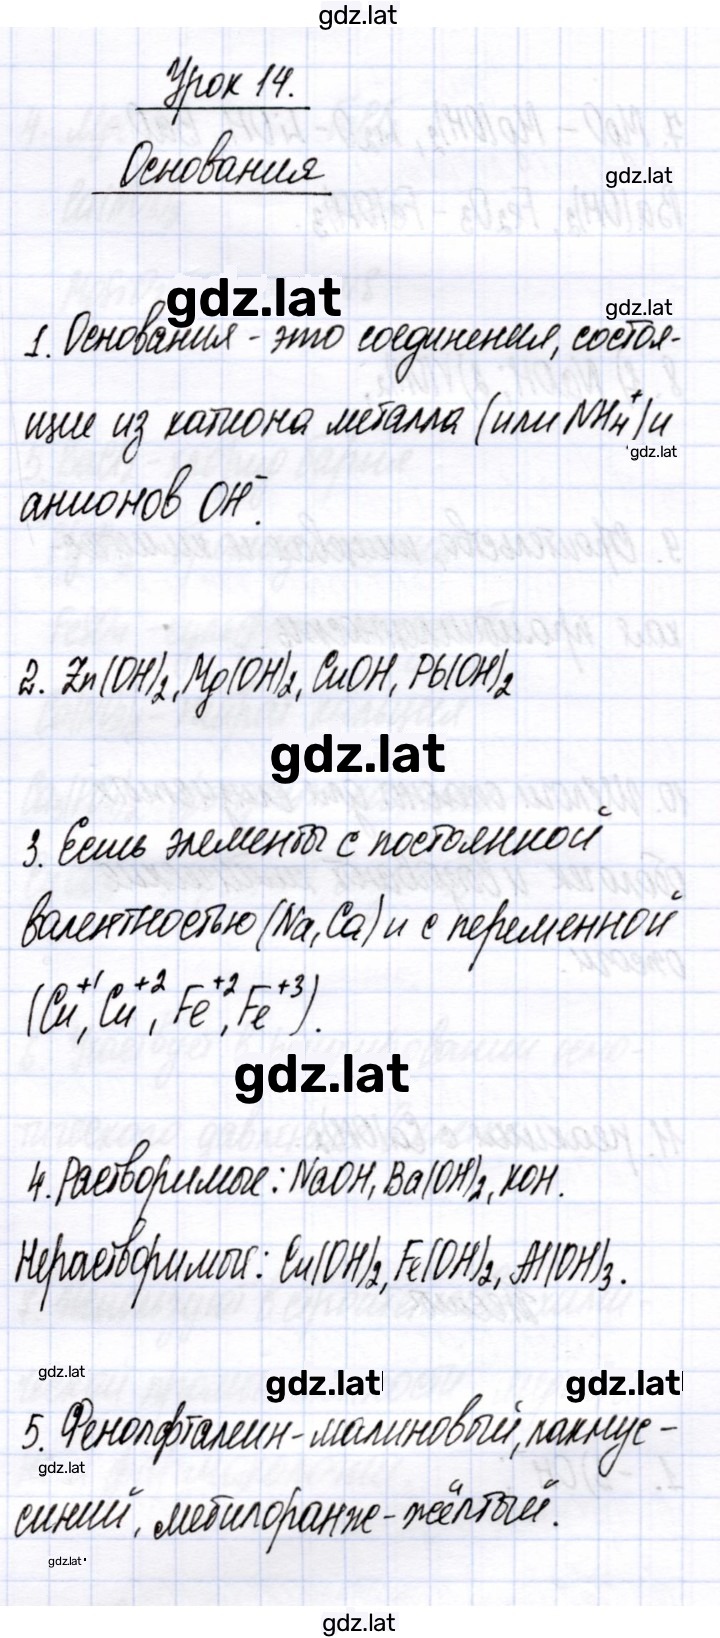 gdz.lat
Урок 14.
Основания
gdz.lat
gdz.lat
gdz.lat
1. Основания - это соединения, состоя-
щие из катиона металла (или NH₄⁺) и
gdz.lat
анионов OH⁻.
2. Zn(OH)₂, Mg(OH)₂, CuOH, Pb(OH)₂
gdz.lat
3. Есть элементы с постоянной
валентностью (Na, Ca) и с переменной
(Cu⁺¹, Cu⁺², Fe⁺², Fe⁺³).
gdz.lat
4. Растворимые: NaOH, Ba(OH)₂, KOH.
Нерастворимые: Cu(OH)₂, Fe(OH)₂, Al(OH)₃.
gdz.lat
gdz.lat gdz.lat
5. Фенолфталеин - малиновый, лакмус -
gdz.lat
синий, метилоранж - жёлтый.
gdz.lat
gdz.lat